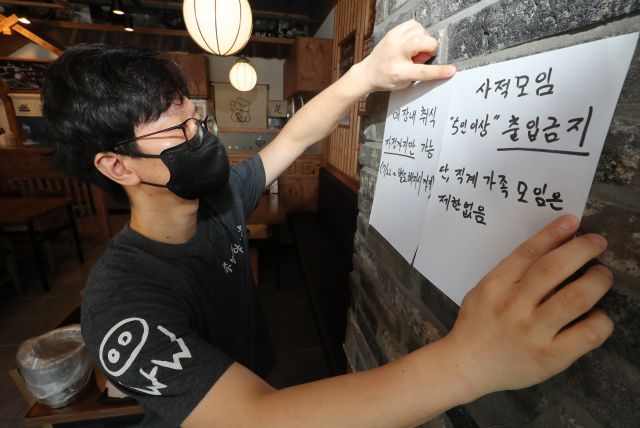 매장내 취식
자정까지만 가능
사적모임
"5인 이상" 출입금지
단 직계 가족 모임은
제한없음